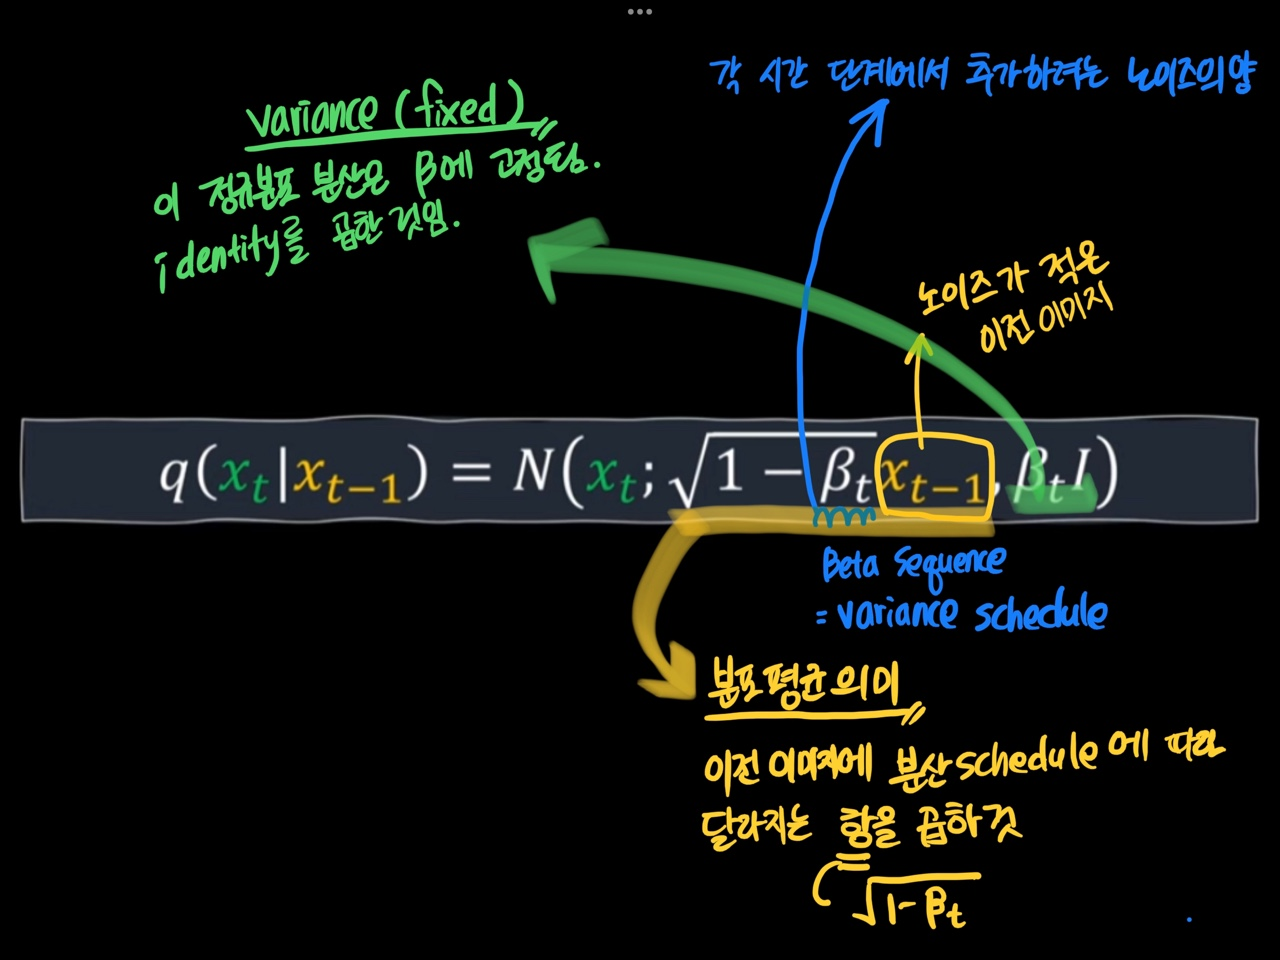 각 시간 단계에서 추가하려는 노이즈의양
variance (fixed)
이 정규분포 분산은 β에 고정됨.
identity를 곱한 것임.
노이즈가 적은
이전 이미지
q(x_t|x_{t-1}) = N(x_t; √(1 − β_t) x_{t-1}, β_t I)
Beta Sequence
= variance schedule
분포평균의미
이전 이미지에 분산schedule에 따라
달라지는 항을 곱한 것
√(1-β_t)